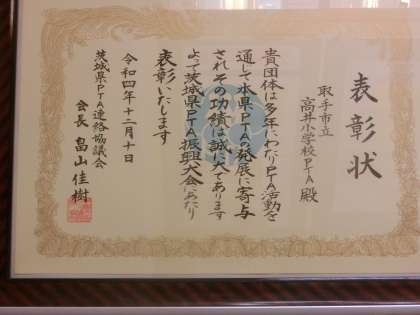 表彰状
取手市立
高井小学校PTA殿
貴団体は多年にわたりPTA活動を
通して本県PTAの発展に寄与
されその功績は誠に大であります
よって茨城県PTA振興大会にあたり
表彰いたします
令和四年十二月十日
茨城県PTA連絡協議会
会長 畠山佳樹